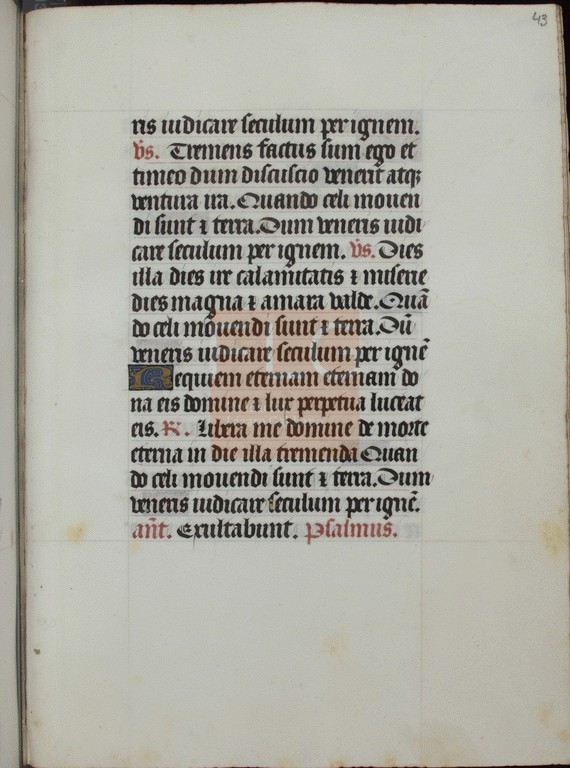 43
ris iudicare seculum per ignem.
v̄s. Tremens factus sum ego et
timeo dum discuscio venerit atqꝫ
ventura ira. Quando celi mouen
di sunt ⁊ terra. Dum veneris iudi
care seculum per ignem. v̄s. Dies
illa dies ire calamitatis ⁊ miserie
dies magna ⁊ amara valde. Quā
do celi mouendi sunt ⁊ terra. Dū
veneris iudicare seculum per ignē
Requiem eternam eternam do
na eis domine ⁊ lux perpetua luceat
eis. R. Libera me domine de morte
eterna in die illa tremenda Quan
do celi mouendi sunt ⁊ terra. Dum
veneris iudicare seculum per ignē.
an̄t. Exultabunt. Psalmus.